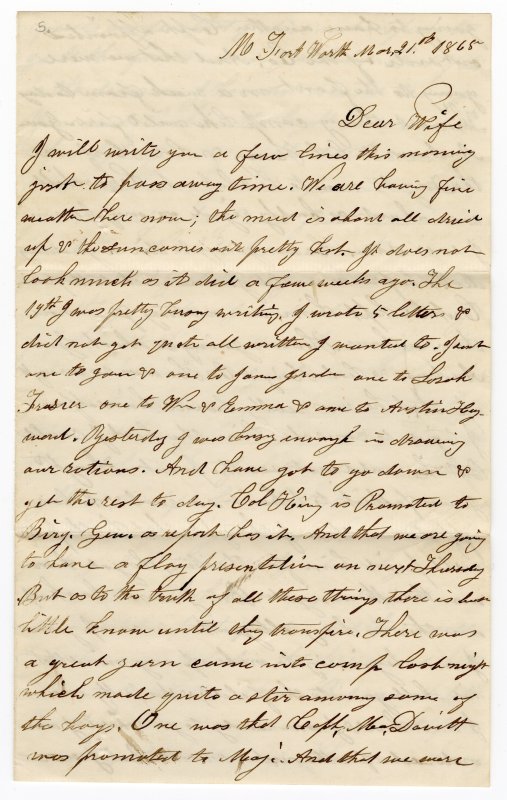 5.
Fort Worth Mar, 21.st 1865
Dear Wife
I will write you a few lines this morning
just to pass away time. We are having fine
weather here now; the mud is about all dried
up & the sun comes out pretty hot. It does not
look much as it did a few weeks ago. The
19th I was pretty busy writing. I wrote 5 letters &
did not get quite all written I wanted to. I sent
one to you & one to Jane one to Sarah
Frasier one to Wm & Emma & one to Austin Hay
word. Yesterday I was busy enough in drawing
our rations. And have got to go down &
get the rest to day. Col King is Promoted to
Brig. Gen. as report has it. And that we are going
to have a flag presentation on next Thursday
But as to the truth of all these things there is but
little know until they transpire. There was
a great yarn came into camp last night
which made quite a stir among some of
the boys. One was that Capt. Mc. Davitt
was promoted to Maj. And that we were